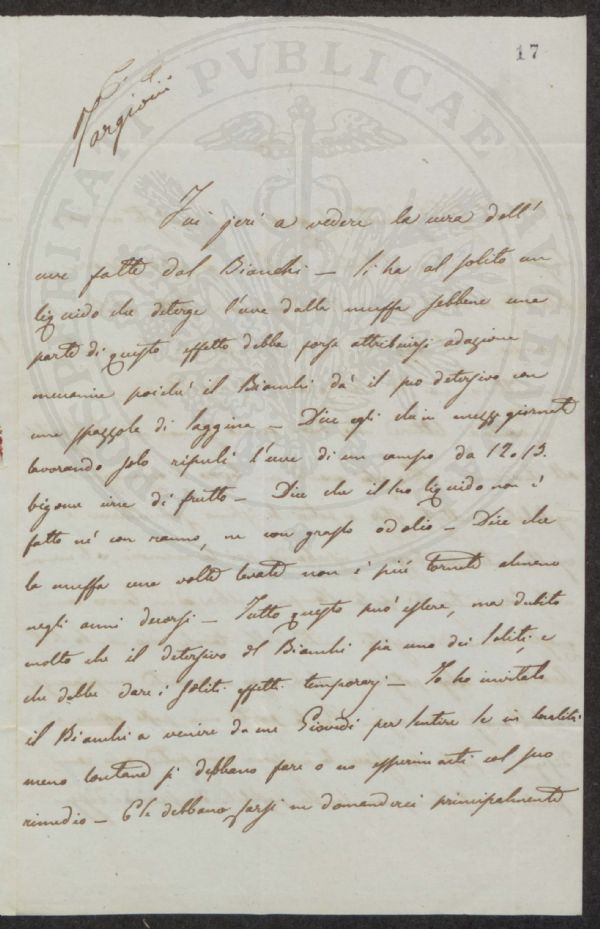 17
C. Targioni
Fui jeri a vedere la cura dell'
uve fatte dal Bianchi — Si ha al solito un
liquido che deterge l'uve dalla muffa sebbene una
parte di questo effetto debba forse attribuirsi ad azione
meccanica poiché il Bianchi dà il suo detersivo con
una spazzola di saggina — Dice egli che in mezza giornata
lavorando solo ripulì l'uve di un campo da 12 o 13.
bigonce uve di frutto — Dice che il suo liquido non è
fatto né con ranno, né con grasso od olio — Dice che
la muffa una volta levata non è più tornata almeno
negli anni decorsi — Tutto questo può essere, ma dubito
molto che il detersivo del Bianchi sia uno dei soliti, e
che debba dare i soliti effetti temporarj — Io ho invitato
il Bianchi a venire da me Giovedì per sentire se in località
meno lontane si debbano fare o no esperimenti col suo
rimedio — E se debbano farsi ne domanderei principalmente
PROSPERITATI PVBLICAE AVGENDAE